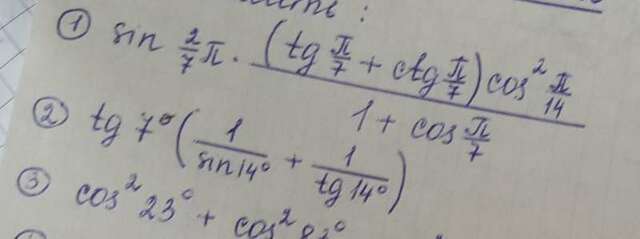 ① sin 2/7 π · (tg π/7 + ctg π/7) cos² π/14 / 1 + cos π/7
② tg 7° (1/sin14° + 1/tg 14°)
③ cos² 23° + cos²